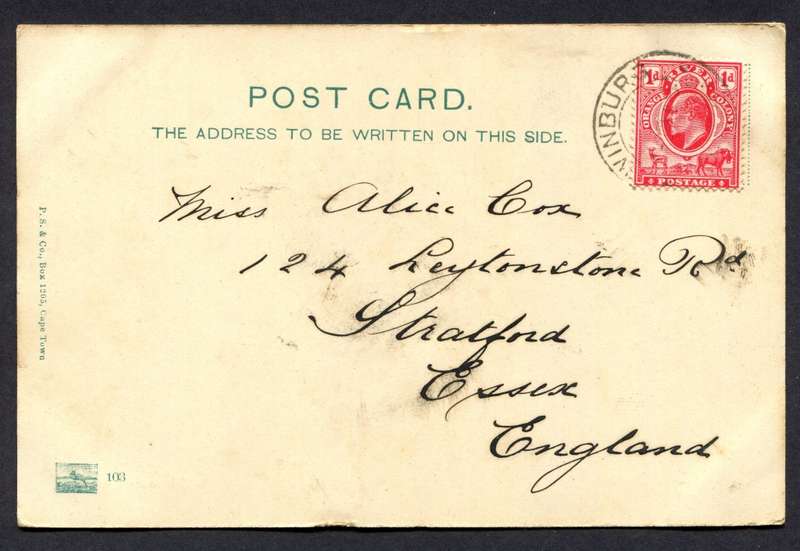 POST CARD.
THE ADDRESS TO BE WRITTEN ON THIS SIDE.
1d RIVER 1d
ORANGE COLONY
POSTAGE
WINBURG
Miss Alice Cox
124 Leytonstone Rd
Stratford
Essex
England
P. S. & Co., Box 1205, Cape Town
103